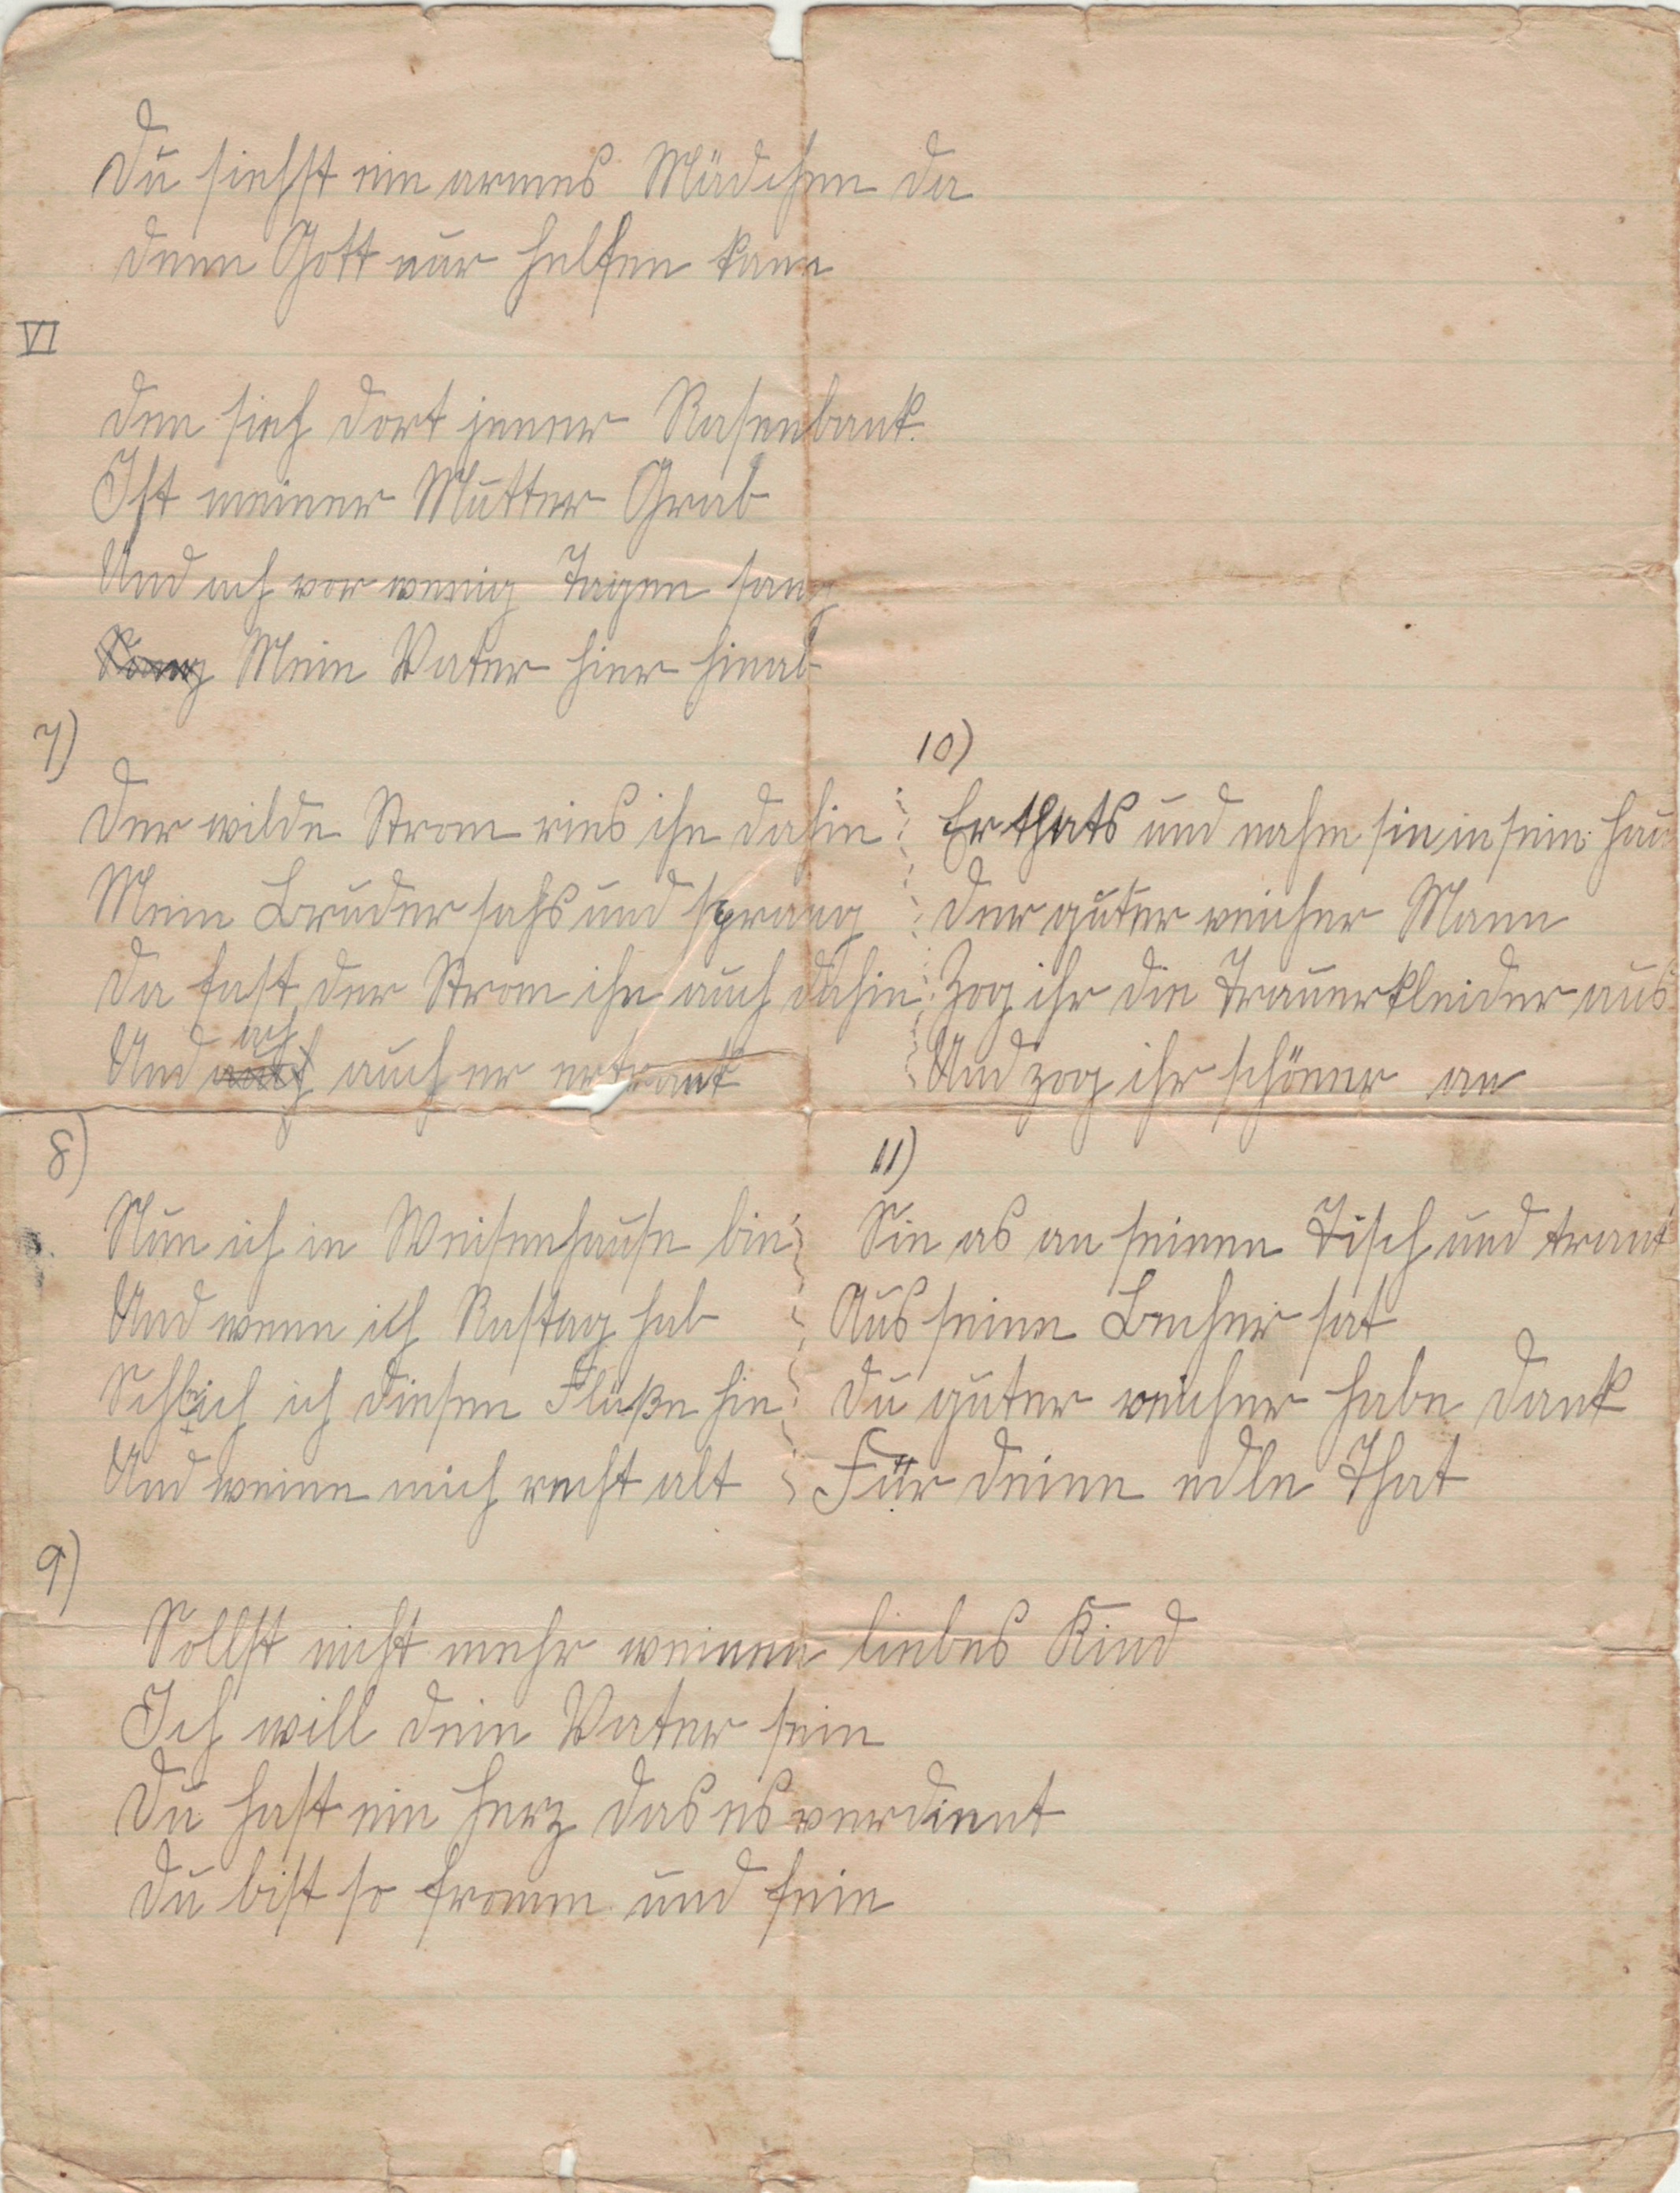 Du siehst ein armes Mädchen da
denn Gott nur helfen kann
VI
den sieh dort jener Rasenbank.
Ist meiner Mutter Grab
Und ach vor wenig Tagen sang
Mein Vater hier hinab
7)
Der wilde Strom ries ihn dahin
Mein Bruder sahs und sprang
Da fast der Strom ihn auch dahin
ach
Und auch er ertrank
8)
Nun ich in Weisenhause bin
Und wenn ich Rastag hab
Schleich ich diesen Fluße hin
Und weine mich recht alt
9)
Sollst nicht mehr weinen liebes Kind
Ich will dein Vater sein
Du hast ein Herz das es verdient
Du bist so fromm und fein
10)
Er thats und nahm sie in sein Hau
Der guter reicher Mann
Zog ihr die Trauerkleider aus
Und zog ihr schöner an
11)
Sie as an seinen Tisch und trank
Aus seinen Becher sat
Du guter reicher habe Dank
Für deine edle That